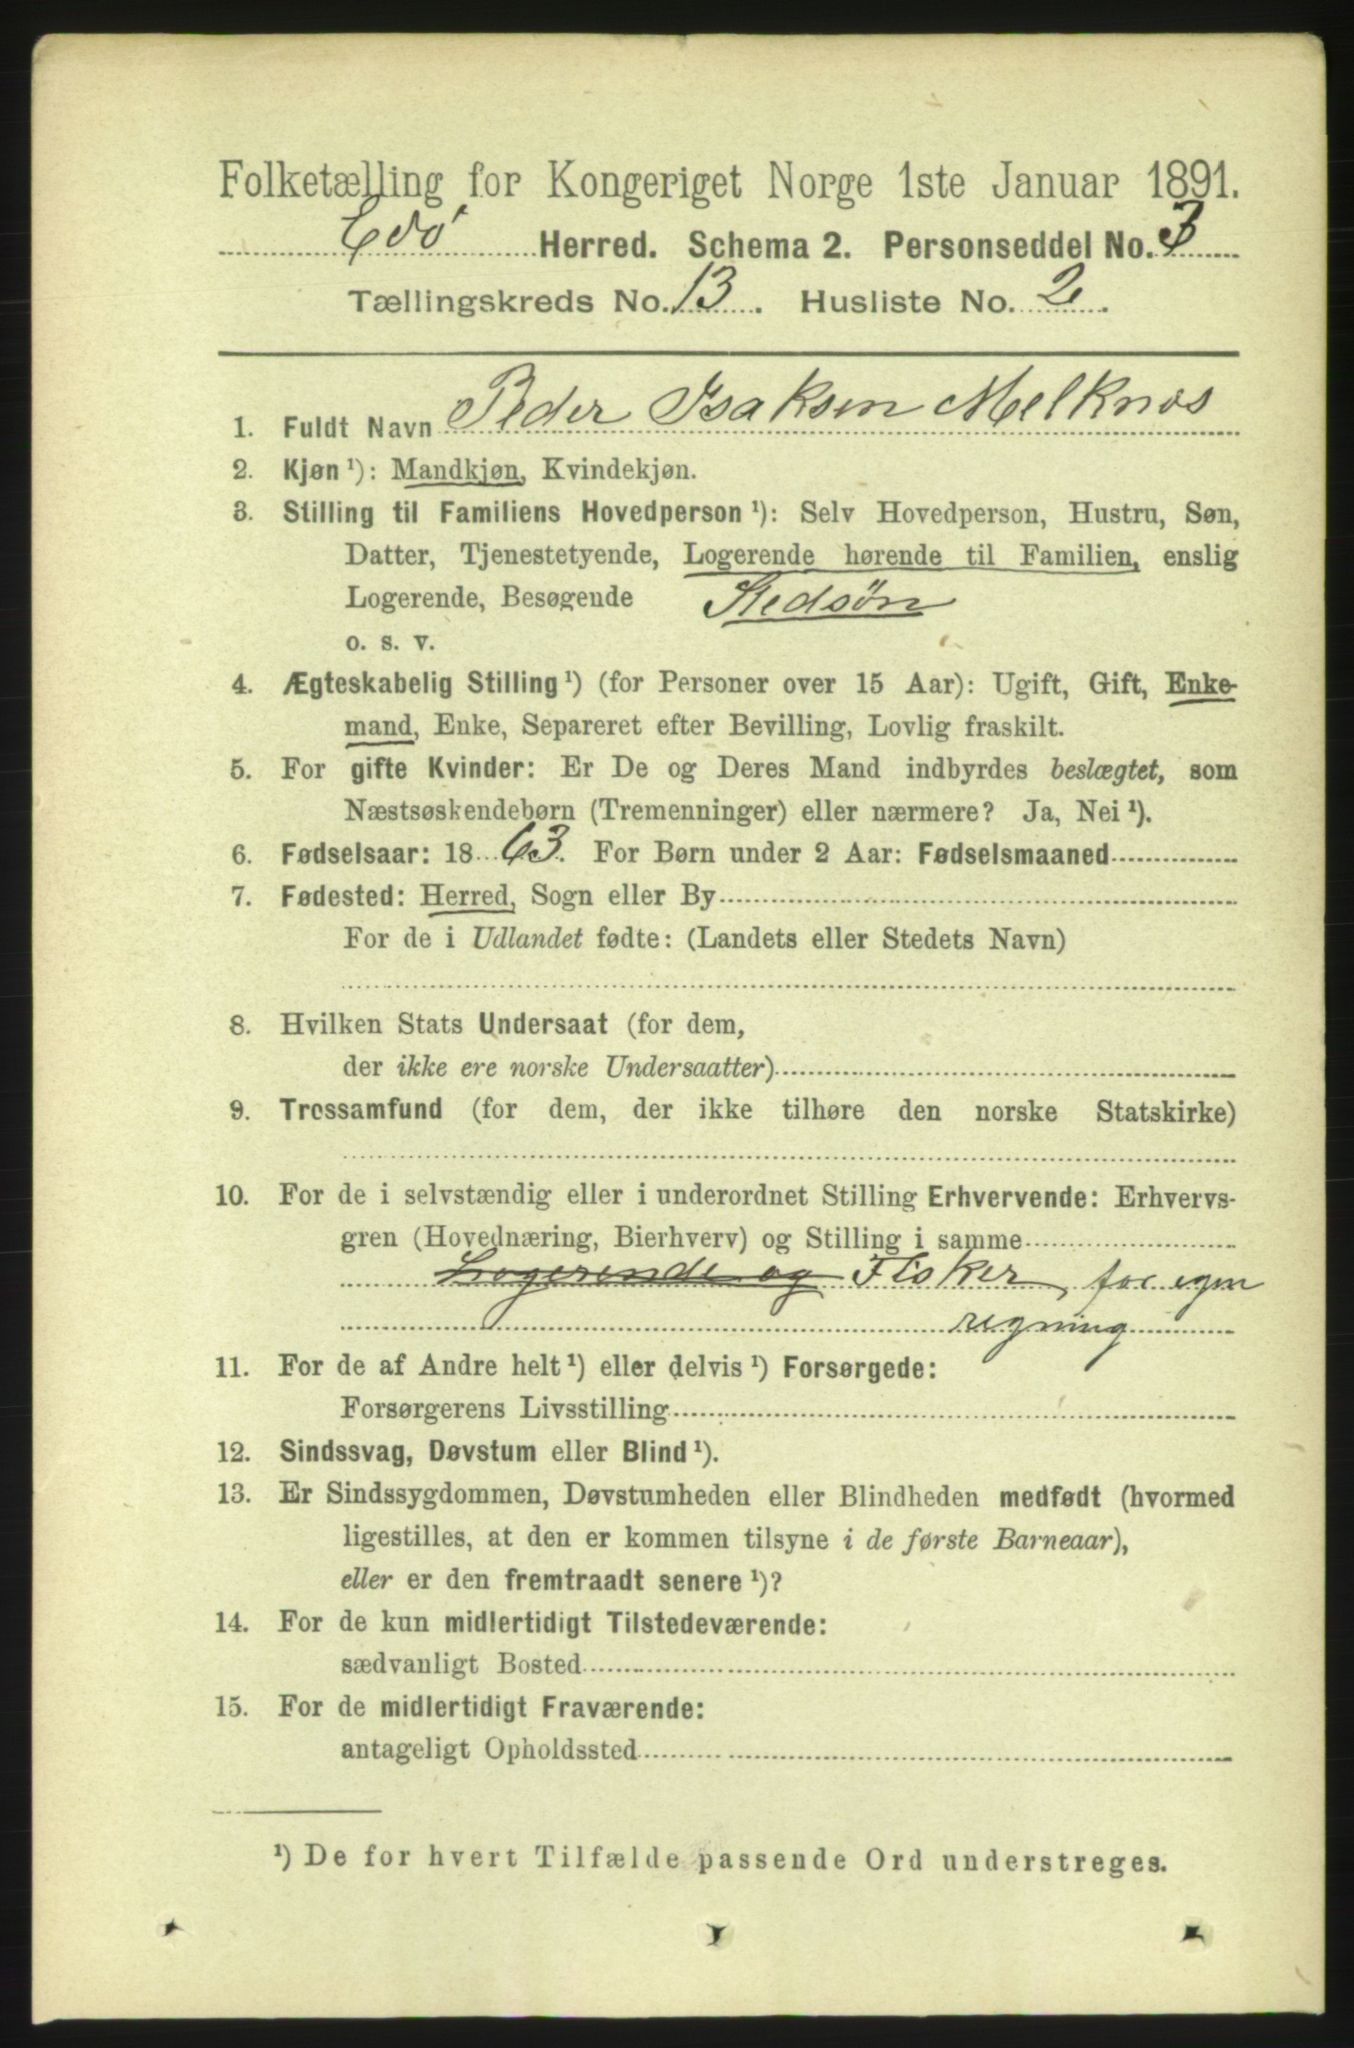 Folketælling for Kongeriget Norge 1ste Januar 1891.
Edö Herred. Schema 2. Personseddel No. 3
Tællingskreds No. 13. Husliste No. 2.
1. Fuldt Navn Peder Isaksen Melknos
2. Kjøn¹): Mandkjøn, Kvindekjøn.
3. Stilling til Familiens Hovedperson¹): Selv Hovedperson, Hustru, Søn,
Datter, Tjenestetyende, Logerende hørende til Familien, enslig
Logerende, Besøgende Stedsøn
o. s. v.
4. Ægteskabelig Stilling¹) (for Personer over 15 Aar): Ugift, Gift, Enke-
mand, Enke, Separeret efter Bevilling, Lovlig fraskilt.
5. For gifte Kvinder: Er De og Deres Mand indbyrdes beslægtet, som
Næstsøskendebørn (Tremenninger) eller nærmere? Ja, Nei¹).
6. Fødselsaar: 1863. For Børn under 2 Aar: Fødselsmaaned
7. Fødested: Herred, Sogn eller By
For de i Udlandet fødte: (Landets eller Stedets Navn)
8. Hvilken Stats Undersaat (for dem,
der ikke ere norske Undersaatter)
9. Trossamfund (for dem, der ikke tilhøre den norske Statskirke)
10. For de i selvstændig eller i underordnet Stilling Erhvervende: Erhvervs-
gren (Hovednæring, Bierhverv) og Stilling i samme
Logerende og Fisker, for egen
regning
11. For de af Andre helt¹) eller delvis¹) Forsørgede:
Forsørgerens Livsstilling
12. Sindssvag, Døvstum eller Blind¹).
13. Er Sindssygdommen, Døvstumheden eller Blindheden medfødt (hvormed
ligestilles, at den er kommen tilsyne i de første Barneaar),
eller er den fremtraadt senere¹)?
14. For de kun midlertidigt Tilstedeværende:
sædvanligt Bosted
15. For de midlertidigt Fraværende:
antageligt Opholdssted
¹) De for hvert Tilfælde passende Ord understreges.